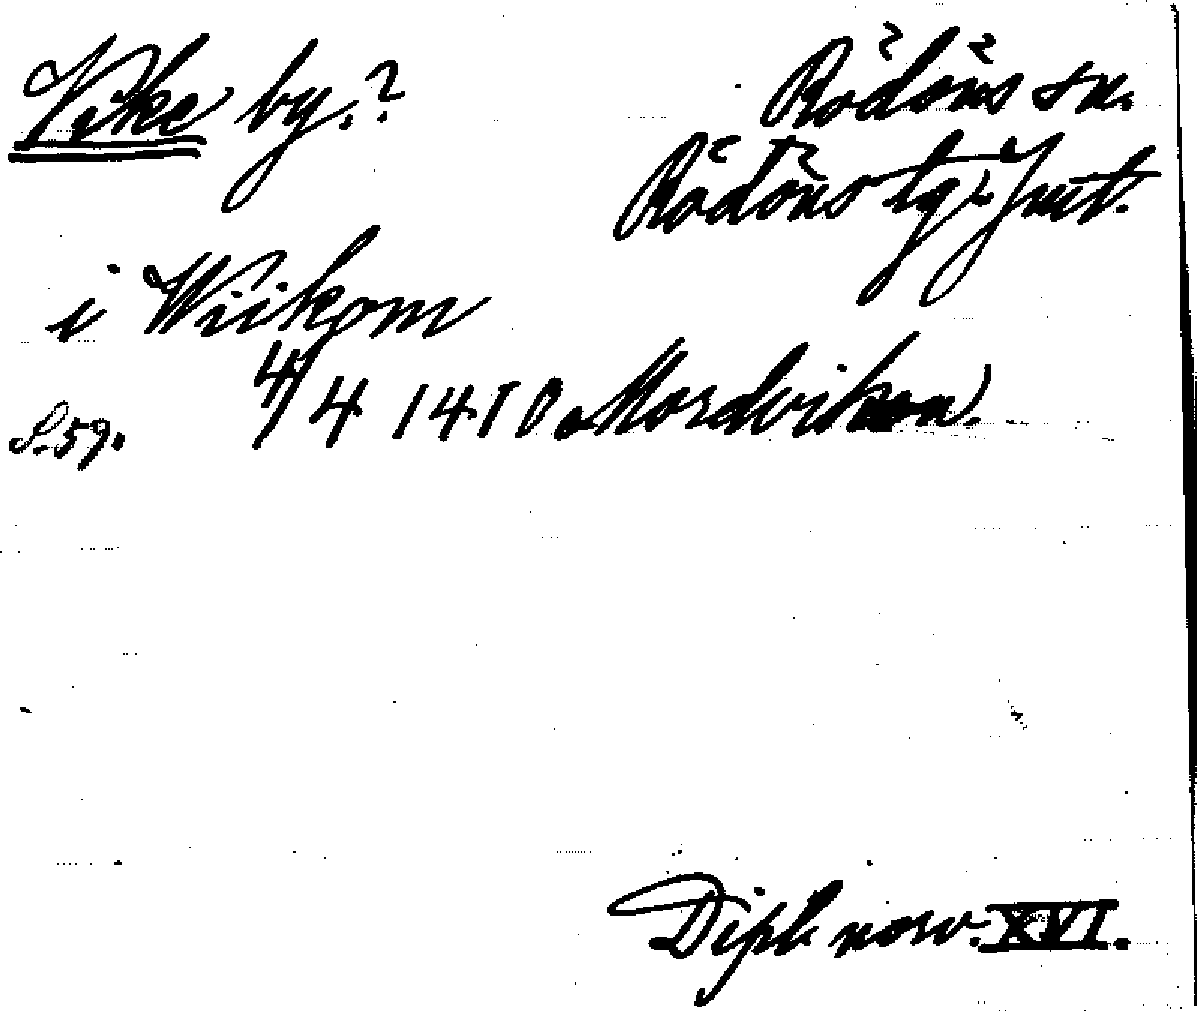 Vike by.?
Rödöns sn.
Rödöns tg. Jmt.
i Wiikom
S. 59.
4/4 1410 Mordvikon.
Dipl. norv. XVI.